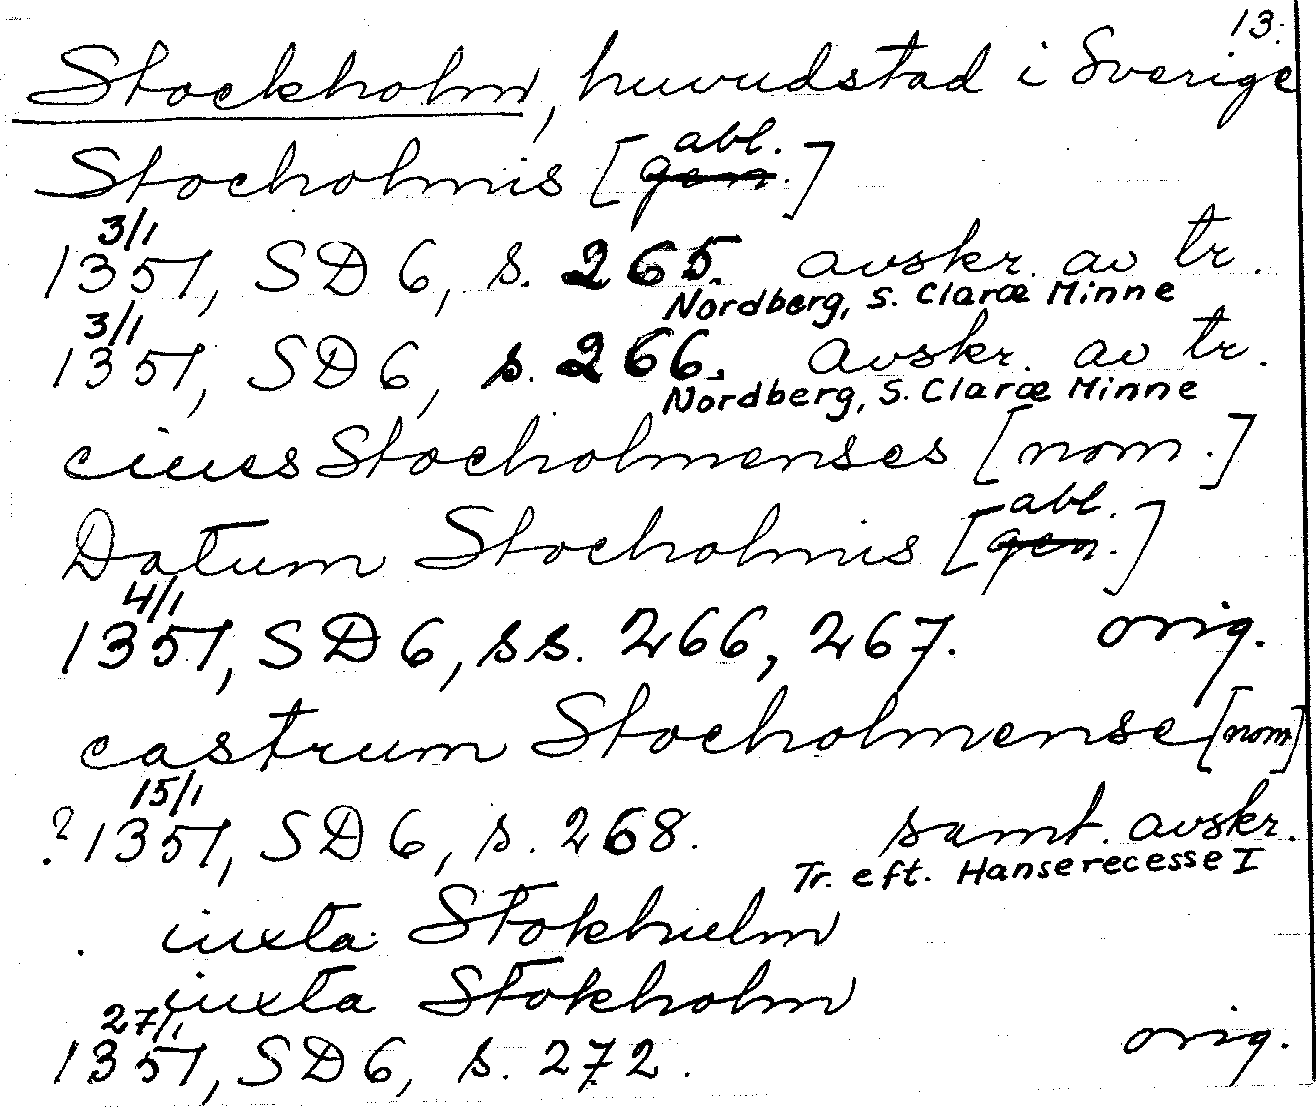 13.
Stockholm, huvudstad i Sverige
abl.
Stocholmis [gen.]
3/1
1351, SD 6, s. 265. avskr. av tr.
Nordberg, S. Claræ Minne
3/1
1351, SD 6, s. 266. avskr. av tr.
Nordberg, S. Claræ Minne
ciues Stocholmenses [nom.]
abl.
Datum Stocholmis [gen.]
4/1
1351, SD 6, ss. 266, 267. orig.
castrum Stocholmense [nom]
15/1
? 1351, SD 6, s. 268. samt. avskr.
Tr. eft. Hanserecesse I
iuxta Stokhuelm
iuxta Stokholm
27/1
1351, SD 6, s. 272. orig.